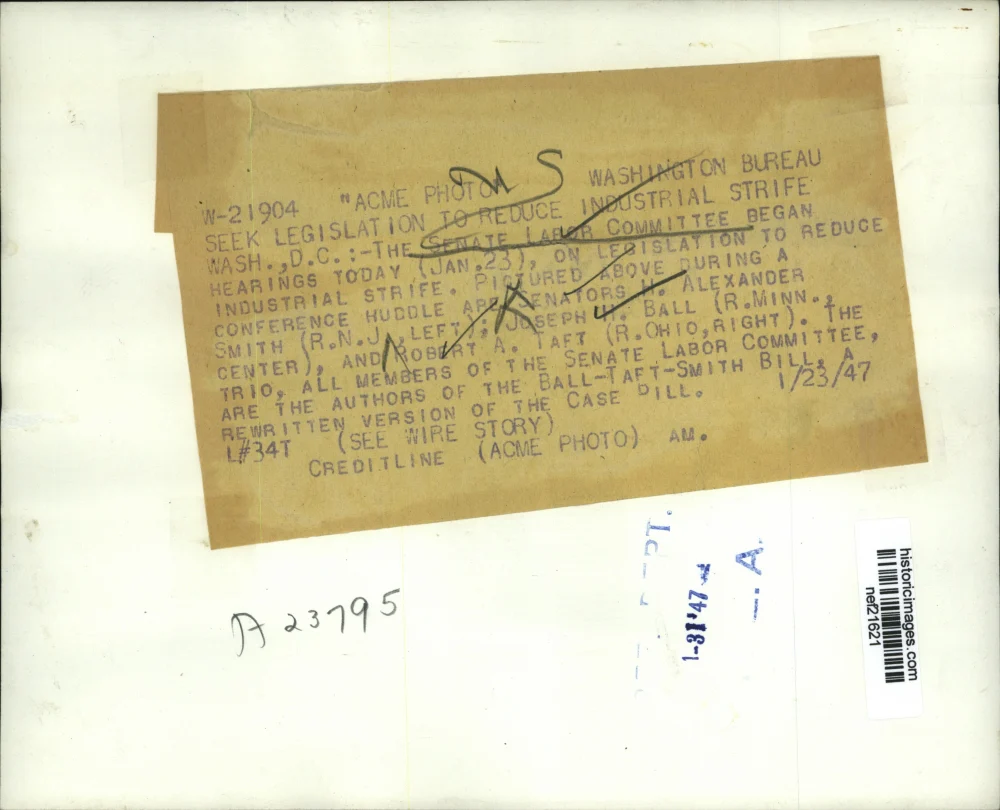 W-21904 "ACME PHOTO" WASHINGTON BUREAU
SEEK LEGISLATION TO REDUCE INDUSTRIAL STRIFE
WASH., D.C.:-THE SENATE LABOR COMMITTEE BEGAN
HEARINGS TODAY (JAN.23), ON LEGISLATION TO REDUCE
INDUSTRIAL STRIFE. PICTURED ABOVE DURING A
CONFERENCE HUDDLE ARE SENATORS H. ALEXANDER
SMITH (R.N.J.,LEFT); JOSEPH H. BALL (R.MINN.,
CENTER), AND ROBERT A. TAFT (R.OHIO,RIGHT). THE
TRIO, ALL MEMBERS OF THE SENATE LABOR COMMITTEE,
ARE THE AUTHORS OF THE BALL-TAFT-SMITH BILL, A
REWRITTEN VERSION OF THE CASE BILL. 1/23/47
L#34T (SEE WIRE STORY)
CREDITLINE (ACME PHOTO) AM.
A 23795
1-31-47
historicimages.com
nef21621